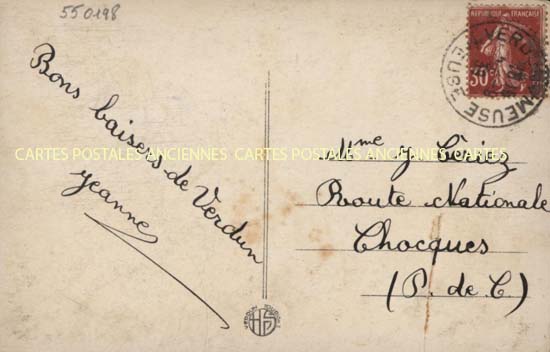 550198
RÉPUBLIQUE FRANÇAISE
30
VERDUN
MEUSE
Bons baisers de Verdun
Jeanne
CARTES POSTALES ANCIENNES CARTES POSTALES ANCIENNES CARTES
Mme G
Route Nationale
Chocques
(P. de C)